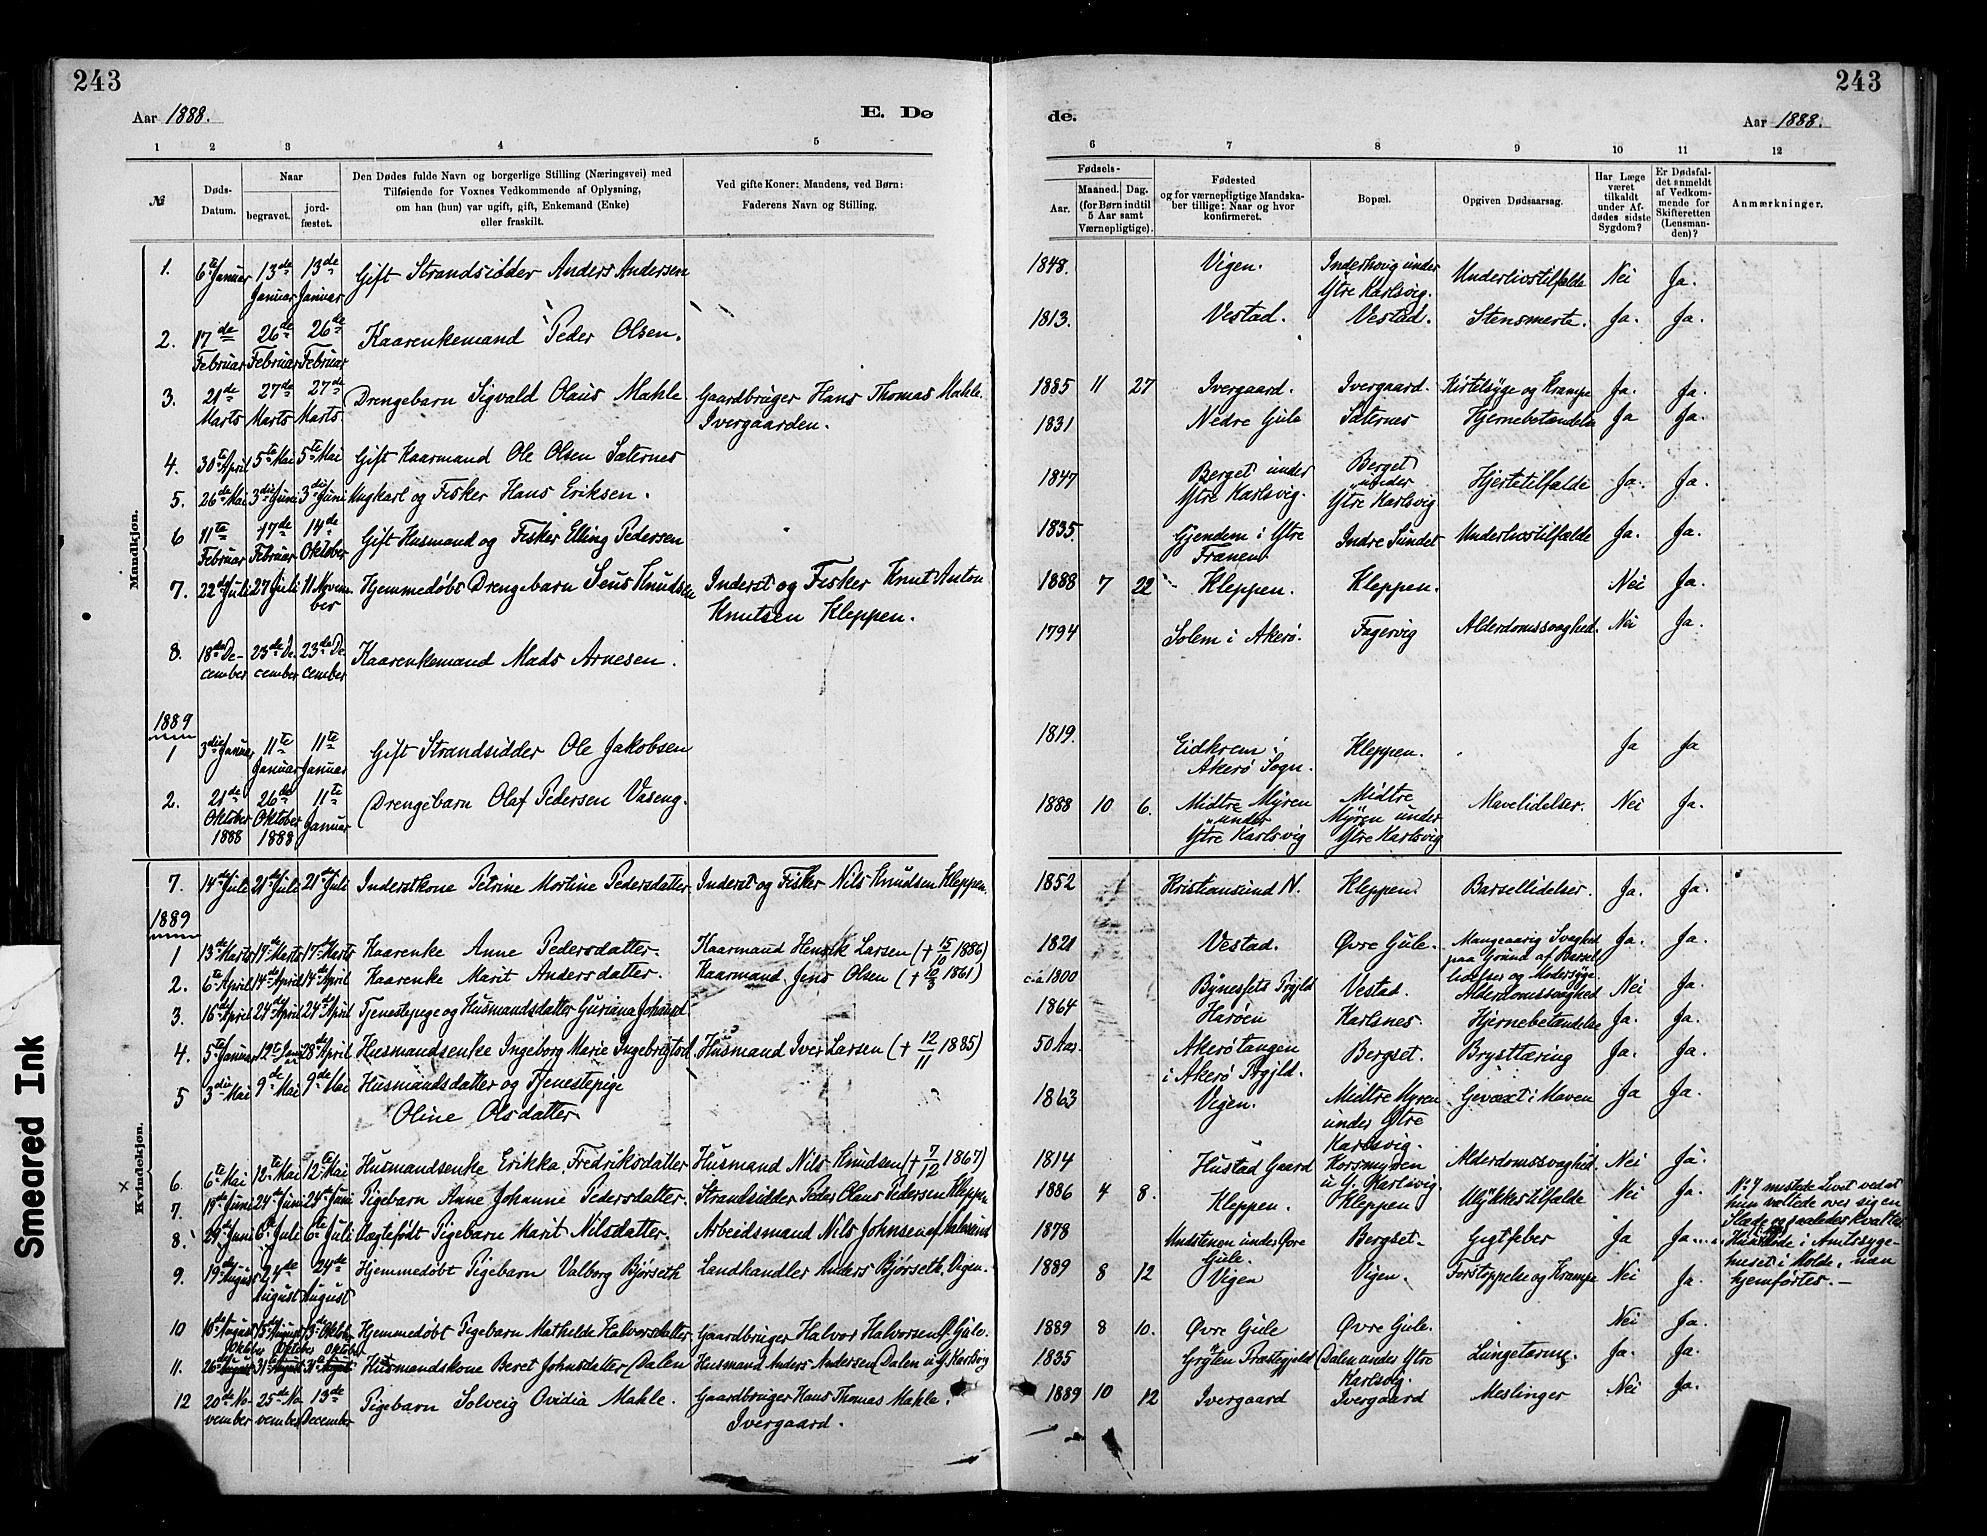 243
243
Aar 1888.
E. Dø
de.
Aar 1888.
1 2 3 4 5
6 7 8 9 10 11 12
№
Døds-
Datum.
Naar
begravet.
jord-
fæstet.
Den Dødes fulde Navn og borgerlige Stilling (Næringsvei) med
Tilføiende for Voxnes Vedkommende af Oplysning,
om han (hun) var ugift, gift, Enkemand (Enke)
eller fraskilt.
Ved gifte Koner: Mandens, ved Børn:
Faderens Navn og Stilling.
Fødsels-
Aar.
Maaned. Dag.
(for Børn indtil
5 Aar samt
Værnepligtige).
Fødested
og for værnepligtige Mandska-
ber tillige: Naar og hvor
konfirmeret.
Bopæl.
Opgiven Dødsaarsag.
Har Læge
været
tilkaldt
under Af-
dødes sidste
Sygdom?
Er Dødsfal-
det anmeldt
af Vedkom-
mende for
Skifteretten
(Lensman-
den)?
Anmærkninger.
Mandkjøn.
1. 6te Januar 13de Januar 13de Januar Gift Strandsidder Anders Andersen 1848. Vigen. Inderhovig under Ytre Karlsvig. Underlivstilfælde Nei Ja.
2. 17de Februar 26de Februar 26de Februar Kaarenkemand Peder Olsen. 1813. Vestad. Vestad. Stensmerte. Ja. Ja.
3. 21de Marts 27de Marts 27de Marts Drengebarn Sigvald Olaus Mahle Gaardbruger Hans Thomas Mahle. Ivergaarden. 1885 11 27 Ivergaard. Ivergaard. Kirtelsyge og Krampe Ja. Ja.
4. 30te April 5te Mai 5te Mai Gift Kaarmand Ole Olsen Sæternes 1831 Nedre Gule Sæternes Hjernebetændelse Ja Ja.
5. 26de Mai 3die Juni 3die Juni Ungkarl og Fisker Hans Eriksen. 1847 Berget under Ytre Karlsvig. Berget under Ytre Karlsvig Hjertetilfælde Ja. Ja.
6 11te Februar 17de Februar 14de Oktober Gift Husmand og Fisker Elling Pedersen 1835. Gjendem i Ytre Frænen Indre Sundet Underlivstilfælde Ja. Ja.
7. 22de Juli 27 Juli 11 November Hjemmedøbt Drengebarn Jens Knudsen Inderst og Fisker Knut Anton Knutsen Kleppen. 1888 7 22 Kleppen. Kleppen. Nei Ja.
8. 18de December 23de December 23de December Kaarenkemand Mads Arnesen. 1794 Solem i Akerö. Fagervig Alderdomssvaghed. Nei Ja.
1889
1 3die Januar 11te Januar 11te Januar Gift Strandsidder Ole Jakobsen 1819. Eidkrem i Akerö Sogn. Kleppen. Ja Ja
2. 21de Oktober 1888 26de Oktober 1888 11te Januar Drengebarn Olaf Pedersen Vaseng. 1888 10 6. Midtre Myren under Ytre Karlsvig Midtre Myren under Ytre Karlsvig Mavelidelser. Nei Ja.
Kvindekjøn.
7. 14de Juli 21de Juli 21de Juli Inderstkone Petrine Martine Pedersdatter Inderst og Fisker Nils Knudsen Kleppen. 1852 Kristiansund N. Kleppen. Barsellidelser. Ja. Ja.
1889
1 13de Marts 17de Marts 17de Marts Kaarenke Anne Pedersdatter. Kaarmand Henrik Larsen (+ 15/10 1886) 1821 Vestad. Øvre Gule. Mangeaarig Svaghed paa Grund af Barsellidelser og Modersyge Ja. Ja.
2. 6te April 14de April 14de April Kaarenke Marit Andersdatter. Kaarmand Jens Olsen (+ 10/3 1861) ca 1800 Bynesfets Prgjld Vestad. Alderdomssvaghed Nei Ja.
3. 16de April 24de April 24de April Tjenestepige og Husmandsdatter Guriana Johnsd 1864 Harøen Karlsnes. Hjernebetændelse Ja. Ja.
4. 5te Januar 12te Jan 28de April Husmandsenke Ingeborg Marie Ingebrigtsd. Husmand Iver Larsen (+ 12/11 1885) 50 Aar. Akerötangen i Akerö Prgjld. Bergset. Brysttæring Ja. Ja.
5 3die Mai 9de Mai 9de Mai Husmandsdatter og Tjenestepige Oline Olsdatter 1863 Vigen. Midtre Myren under Ytre Karlsvig. Gevæxt i Maven Ja Ja.
6. 6te Mai 12te Mai 12te Mai Husmandsenke Erikka Fredriksdatter Husmand Nils Knudsen (+ 7/12 1867) 1814 Hustad Gaard Korsmyren u. Y. Karlsvig. Alderdomssvaghed. Nei Ja.
× 7. 19de Juni 24de Juni 24de Juni Pigebarn Anne Johanne Pedersdatter. Strandsidder Peder Olaus Pedersen Kleppen 1886 4 8. Kleppen. Kleppen Ulykkestilfælde Nei Ja. N: 7 mistede Livet ved at hun væltede over sig en Stade og saaledes kvaltes
8. 29de Juni 6te Juli 6te Juli Uægtefødt Pigebarn Marit Nilsdatter. Arbeidsmand Nils Johnsen 1878 under Øvre Gule. Bergset. Gigtfeber Ja Ja.... døde i Amtssygehuset i Molde, men hjemførtes.—
9. 19de August 24de August 24de August Hjemmedøbt Pigebarn Valborg Bjørseth Landhandler Anders Bjørseth, Vigen. 1889 8 12 Vigen Vigen. Forstoppelse og Krampe Nei Ja.
10 10de August 15de August 13de Oktober Hjemmedøbt Pigebarn Mathilde Halvorsdatter Gaardbruger Halvor Halvorsen Ø. Gule. 1889 8 10. Øvre Gule Øvre Gule. Nei Ja.
11. 26de Oktober 31de Oktober 31de Oktober Husmandskone Beret Johnsdatter Dalen Husmand Anders Andersen Dalen u. Y. Karlsvig 1835 Grytten Præstegjeld Dalen under Ytre Karlsvig. Lungetæring. Ja. Ja.
12 20de November 25de November 13de December Pigebarn Solveig Ovidia Mahle. Gaardbruger Hans Thomas Mahle. Ivergaard. 1889 10 12 Ivergaard Ivergaard Meslinger Nei Ja.
Smeared Ink